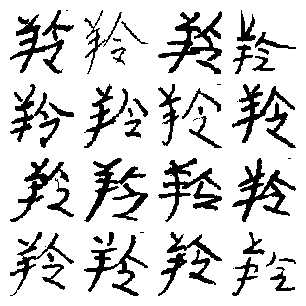 羚羚羚羚
羚羚羚羚
羚羚羚羚
羚羚羚羚